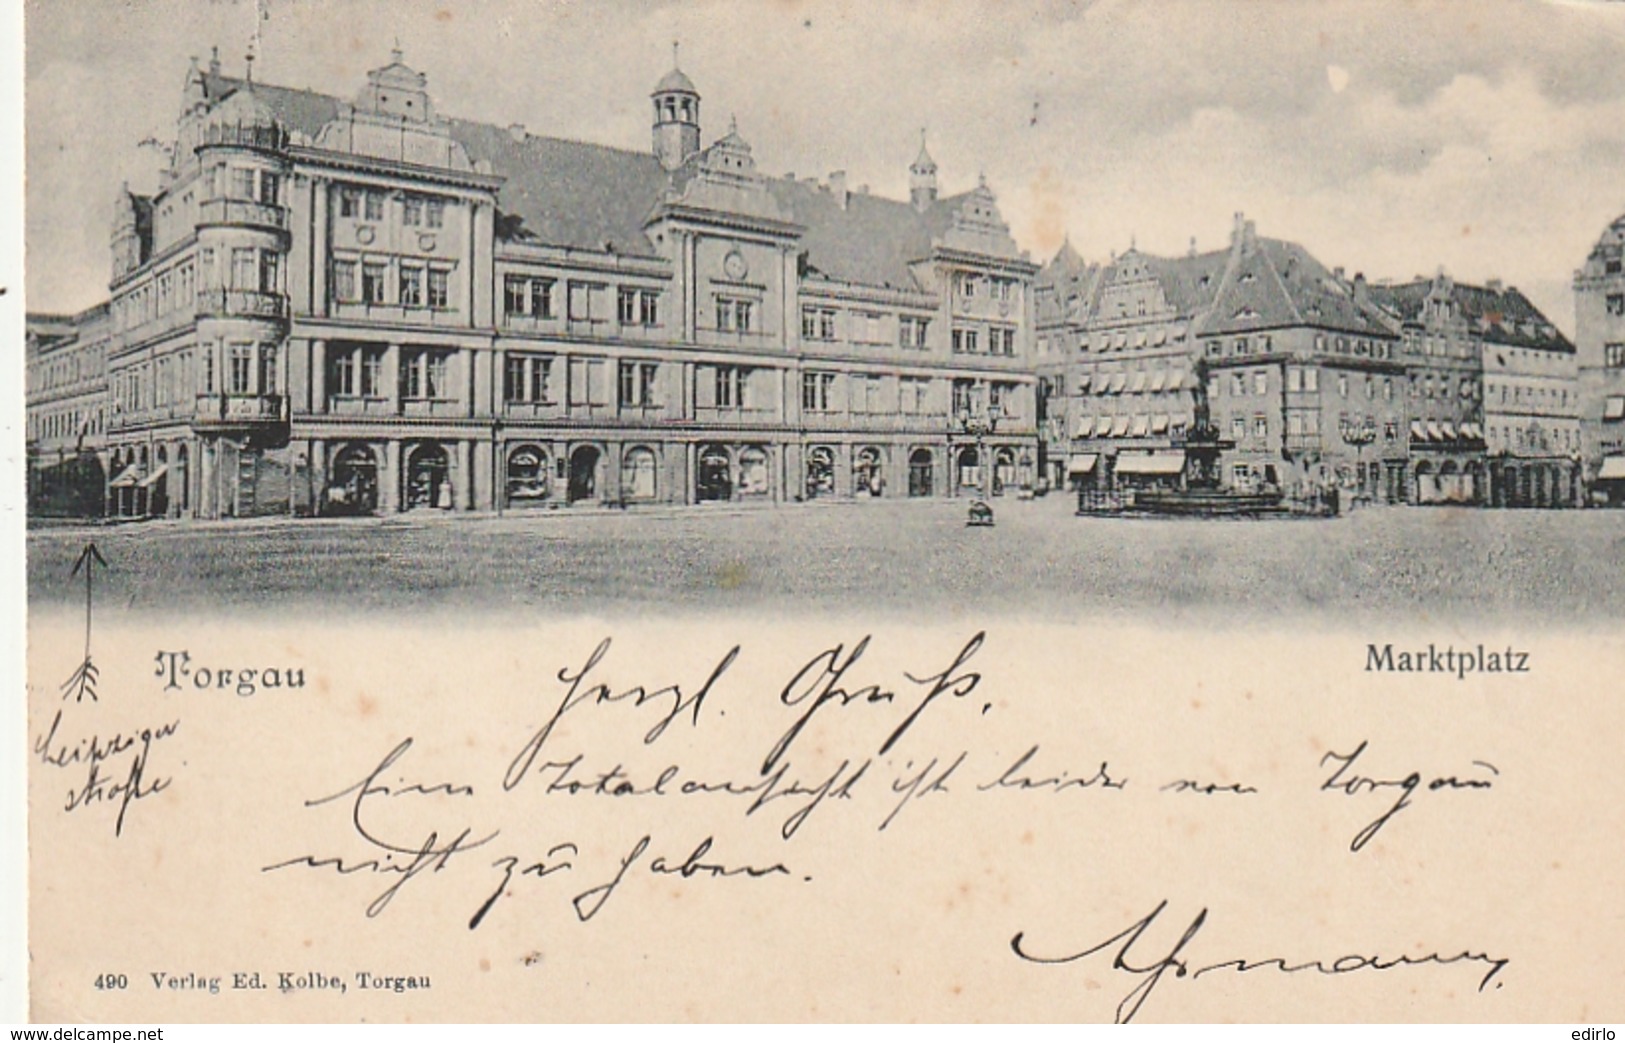 Torgau
Marktplatz
Leipziger
straße
Herzl. Gruß.
Eine Totalansicht ist leider von Torgau
nicht zu haben.
490 Verlag Ed. Kolbe, Torgau
www.delcampe.net
edirlo